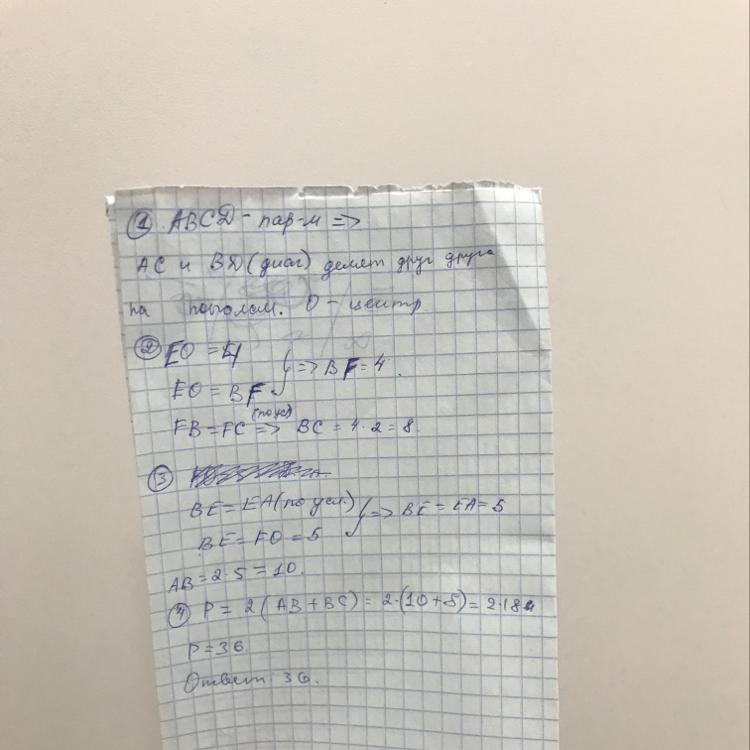 ① ABCD - пар-м =>
AC и BD (диаг) делят друг друга
на пополам. O - центр.
② EO = 4
EO = BF } => BF = 4.
FB = FC (по ус) => BC = 4·2 = 8.
③
BE = EA (по усл.)
BE = FO = 5 } => BE = EA = 5
AB = 2·5 = 10.
④ P = 2(AB + BC) = 2·(10+8) = 2·18
P = 36.
Ответ: 36.